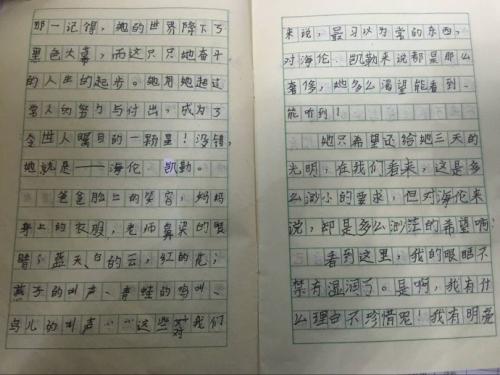 那一记得，她的世界降下了
黑色大幕，而这只只她奋斗
的人生的起步。她用她超过
常人的努力与付出，成为了
令世人瞩目的一颗星！没错，
她就是——海伦 凯勒。
爸爸脸上的笑容，妈妈
身上的衣服，老师鼻梁的眼
镜；蓝天、白的云，红的花；
燕子的叫声、青蛙的鸣叫、
鸟儿的叫声……这些对我们
来说，最习以为常的东西，
对海伦 凯勒来说都是那么
奢侈，她多么渴望能看到、
能听到！
她只希望还给她三天的
光明，在我们看来，这是多
么渺小的要求，但对海伦来
说，却是多么渺茫的希望啊！
看到这里，我的眼眶不
禁有湿润了。是啊，我有什
么理由不珍惜呢！我有明亮